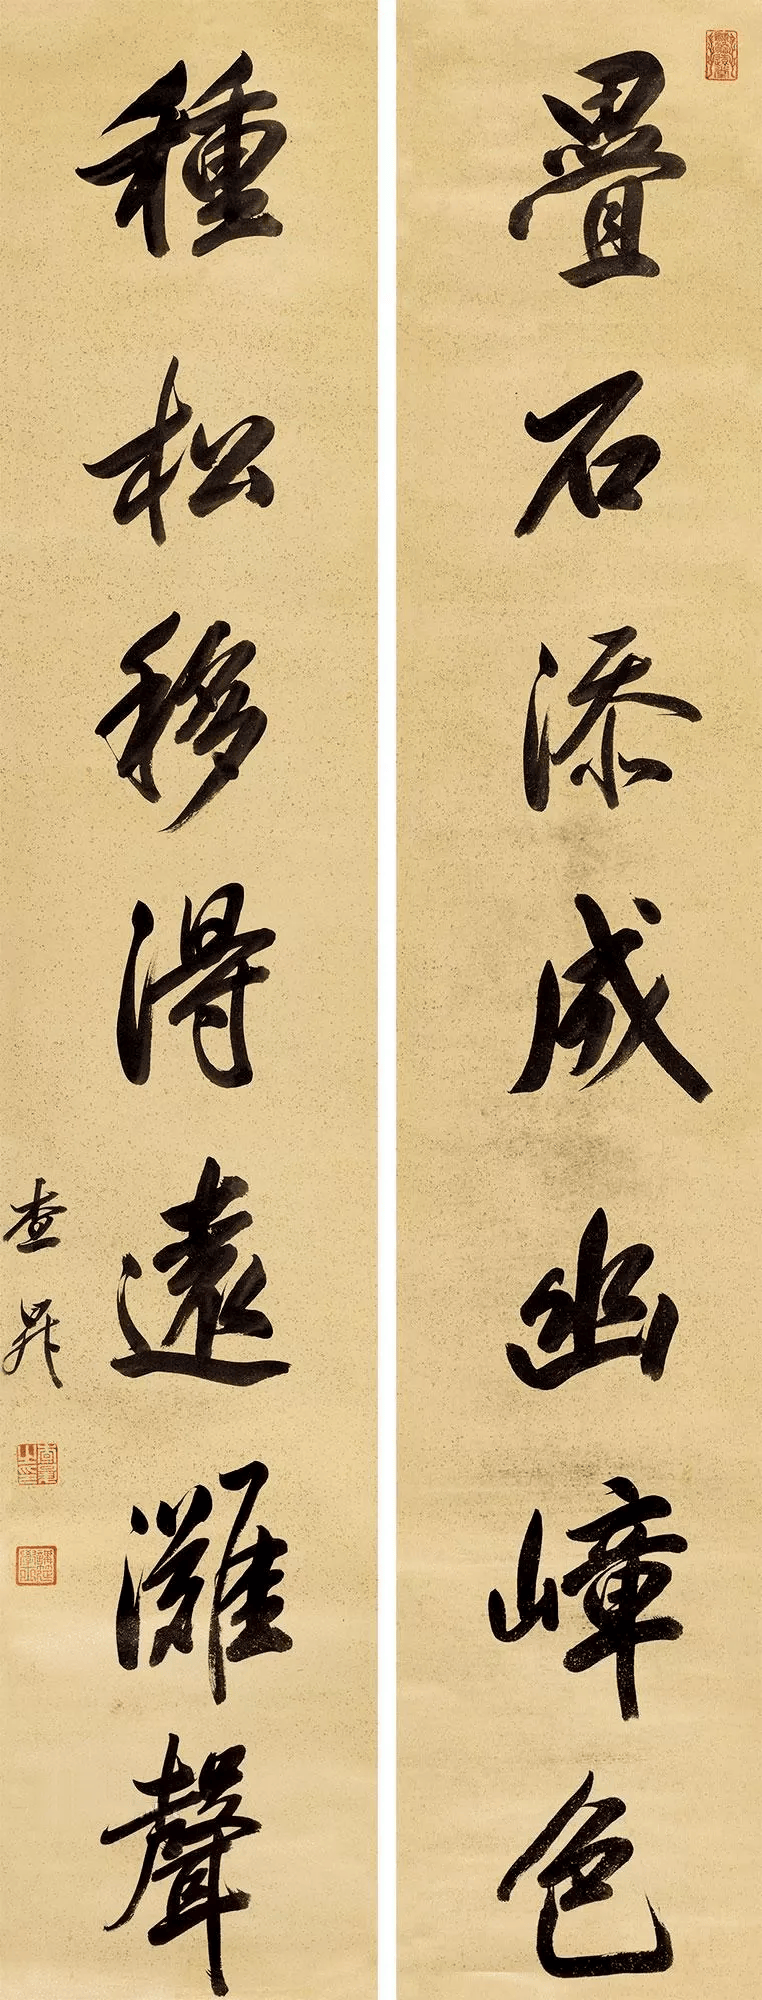 疊石添成幽嶂色
種松移得遠灘聲
查昇
查昇之印